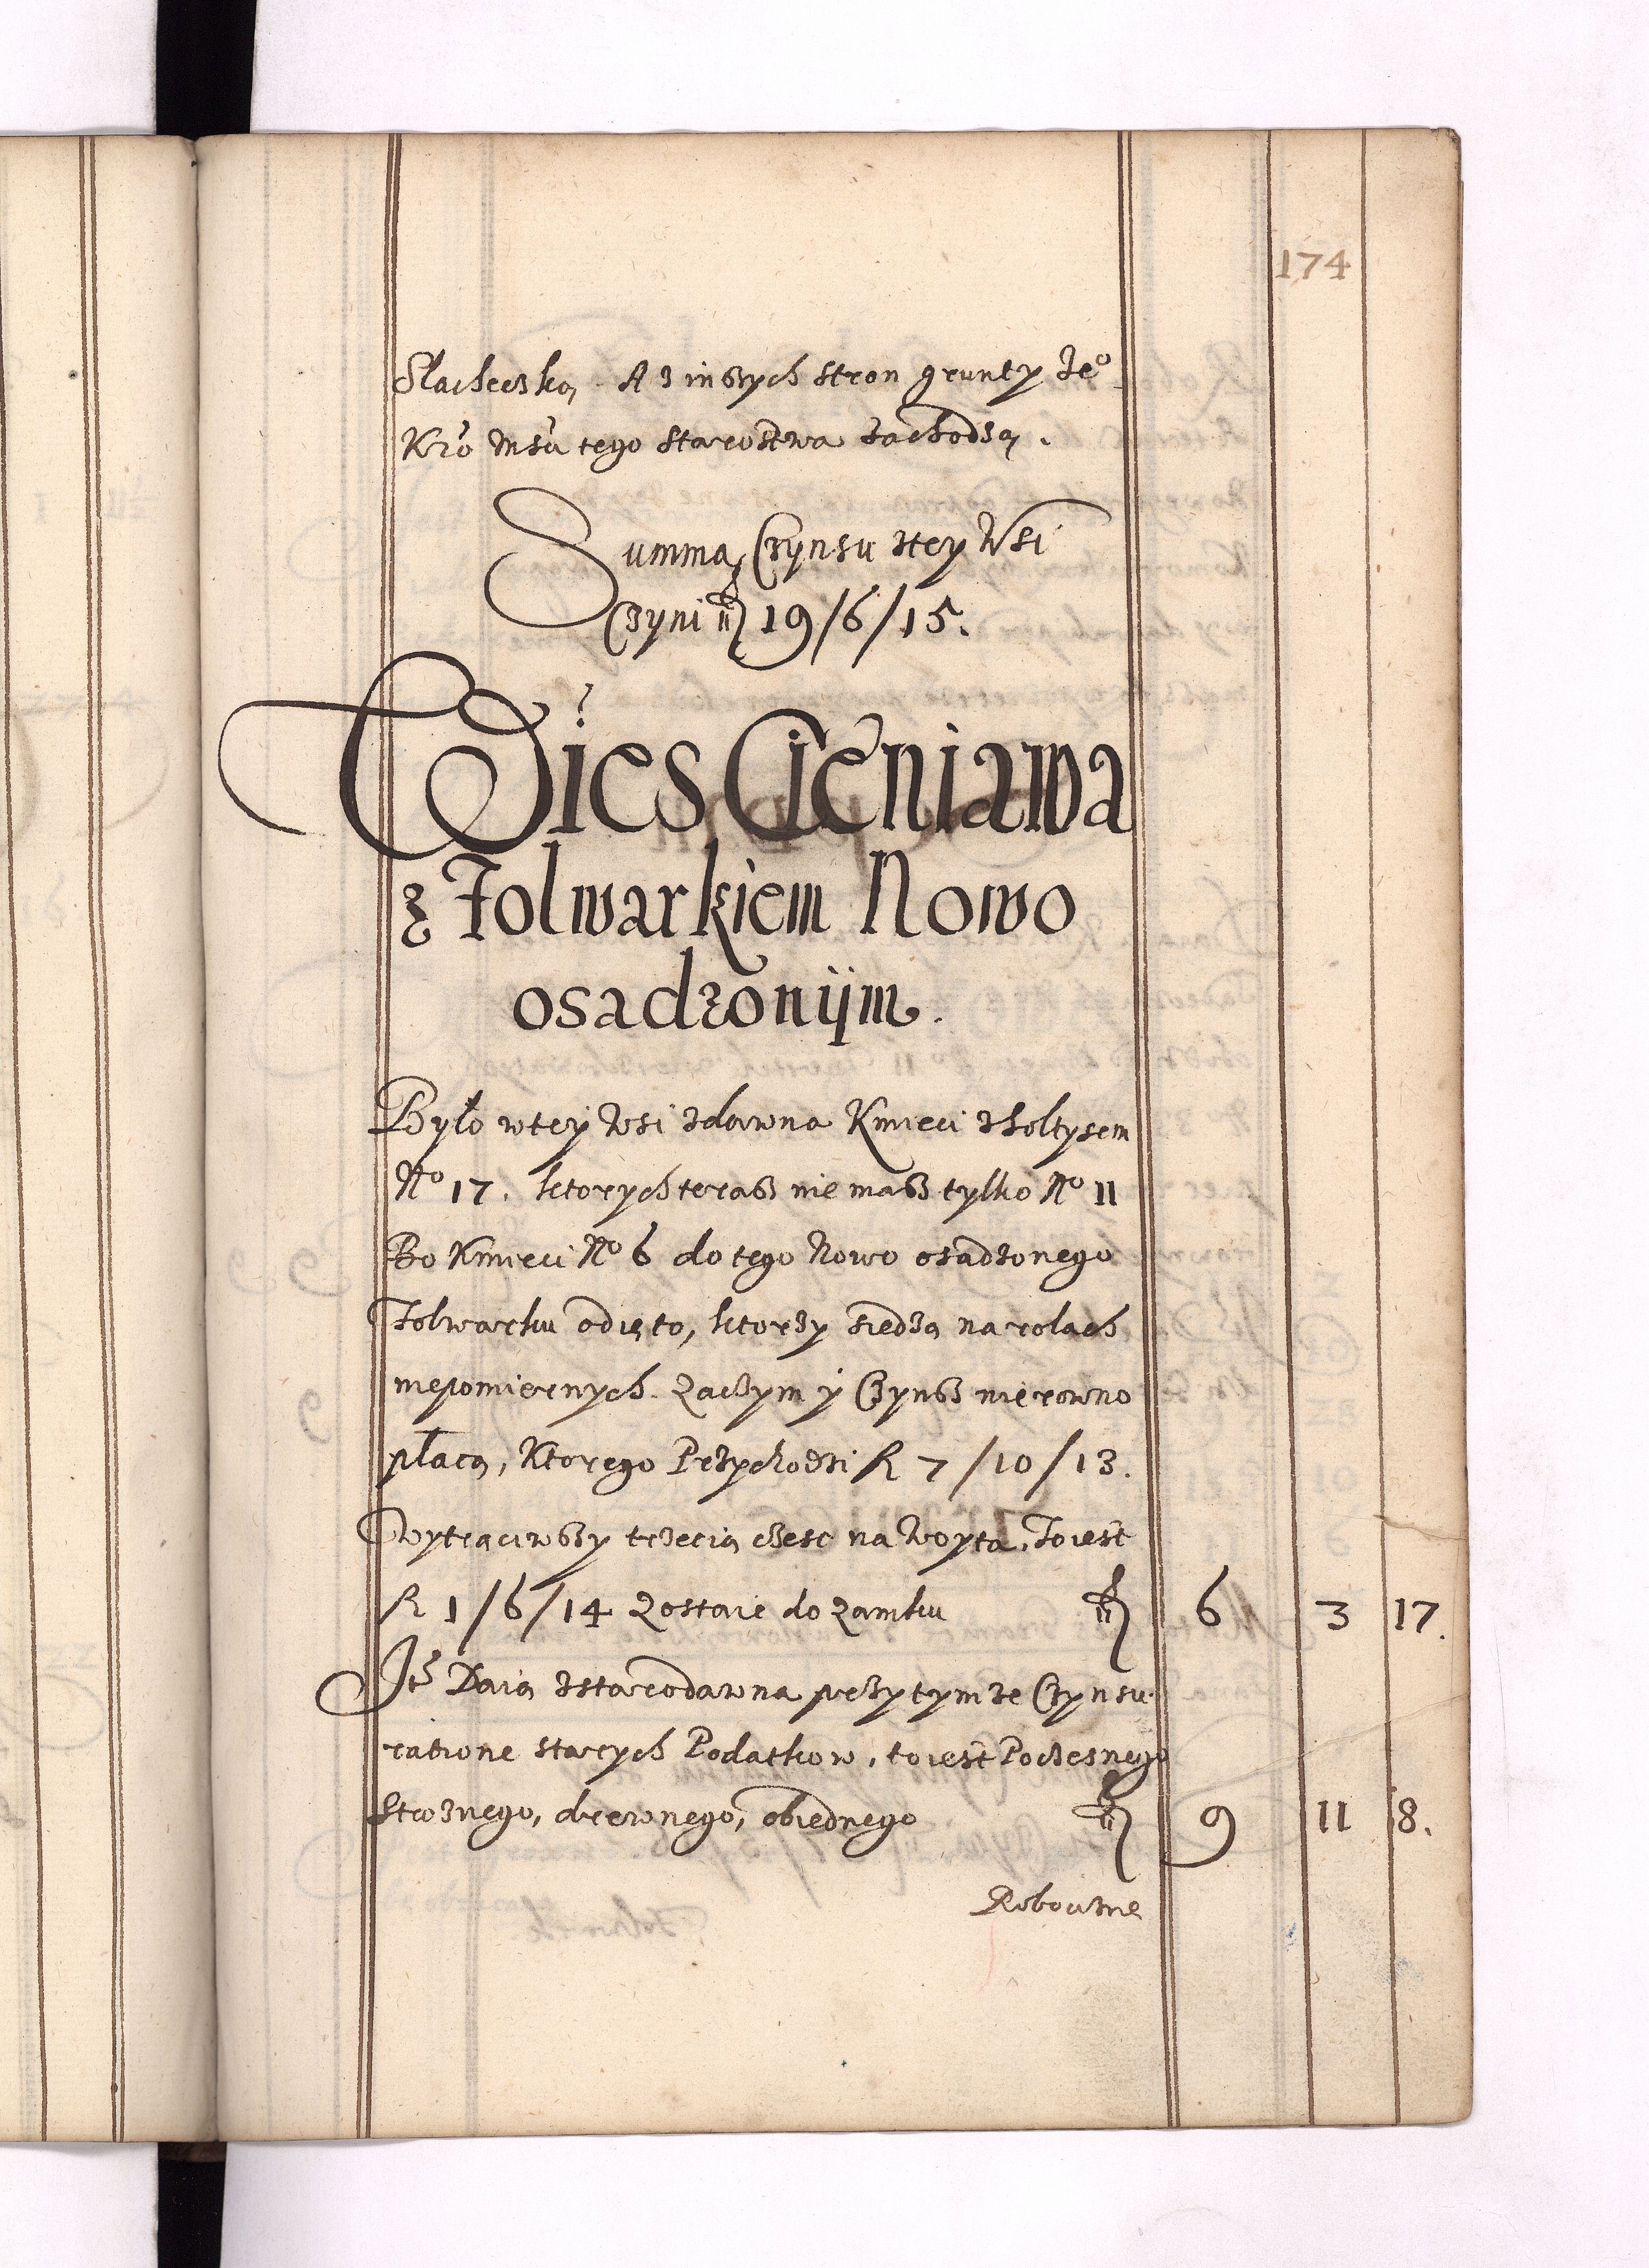 174
Slachecką. A z inßych stron grunty Je⁰
Kró Mśu tego Starostwa zachodzą.
Summa Czynsu stey Wsi
Czyni 19/6/15.
Wies Cieniawa
z Folwarkiem Nowo
osadzonijm.
Było wtey Wsi zdawna Kmieci zSoltysem
Nº 17. ktorych teraß nie maß tylko Nº 11
Bo Kmieci Nº 6 do tego Nowo osadzonego
Folwarku odięto, ktorzy siedzą na rolach
niepomiernych. Zaczym ÿ Czynß nierowno
płacą, Ktorego Przychodzi R 7/10/13.
Wytrąciwßy trzecią czesc na Woyta, Toiest
R 1/6/14 Zostaie do Zamku 6 3 17.
Itẽ Daią zstarodawna przytymze Czynsu
ratione starych Podatkow, toiest Poczesnego
Stroznego, drewnego, obiednego 9 11 8.
Roboczne